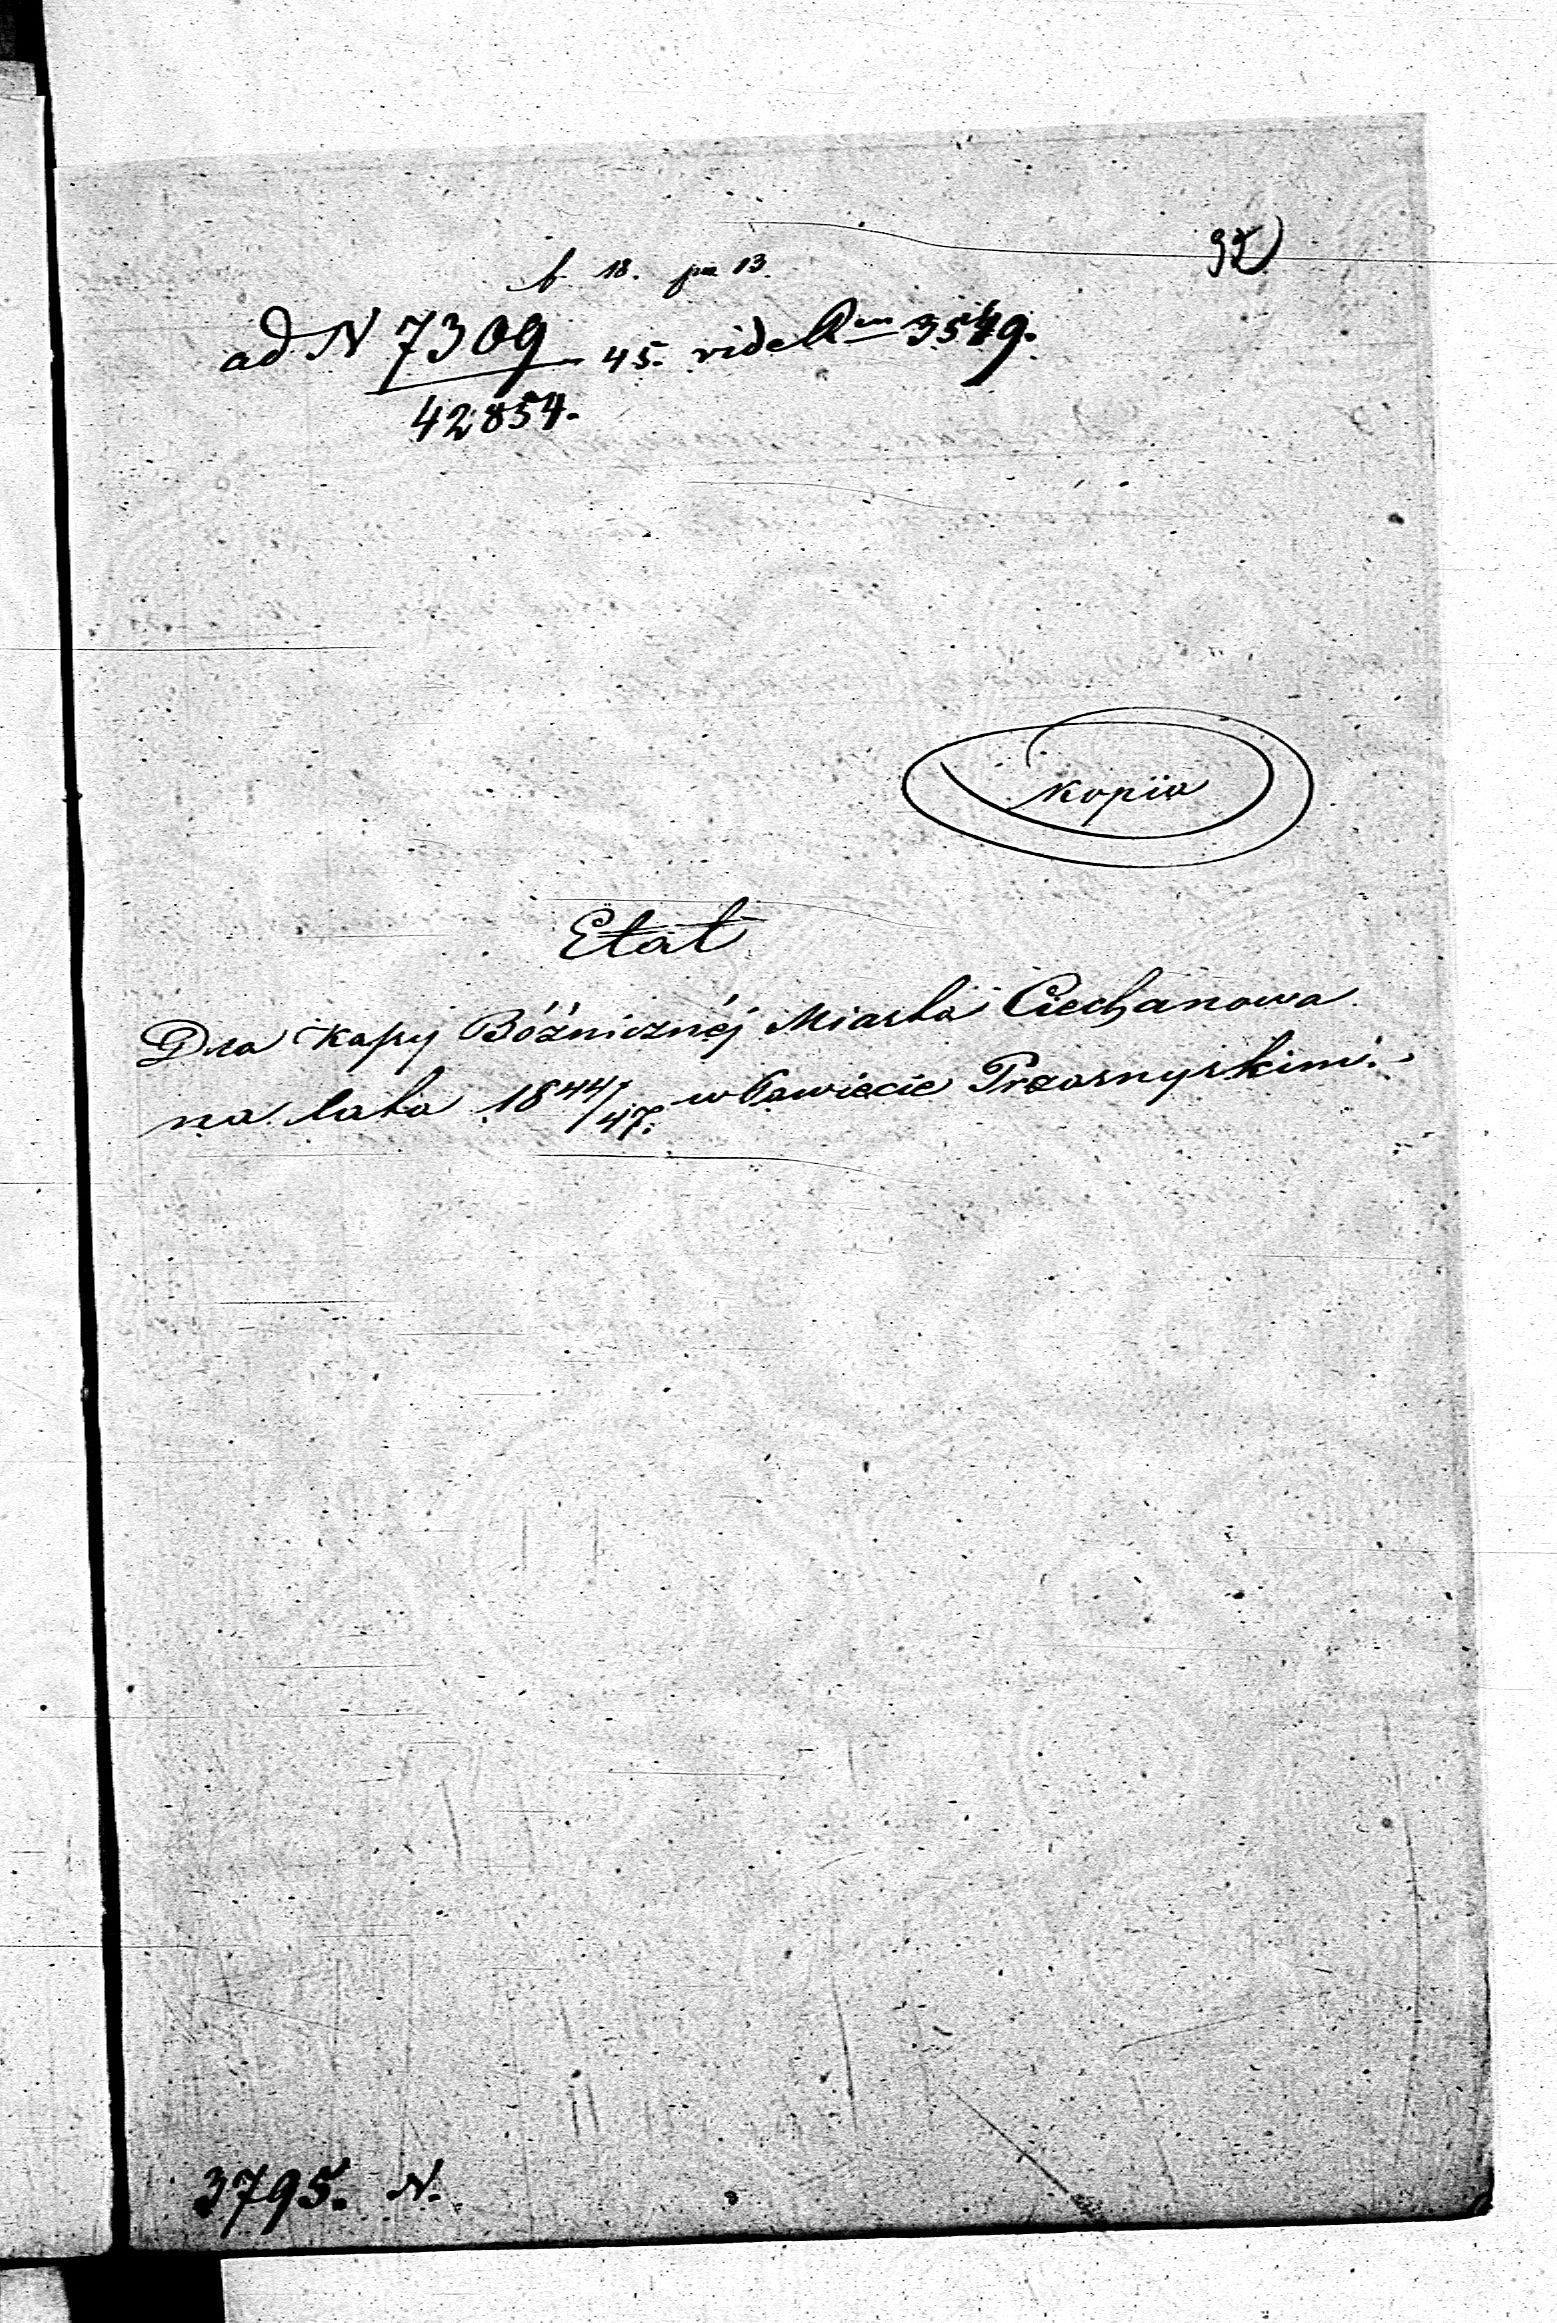 92
f 18. pu 13.
ad N 7309 45. vide Rum 3549.
42854.
Kopiia
Etat
Dla Kassy Bóżnicznéj Miasta Ciechanowa
na lata 1844/47. w Powiecie Przasnyskim.
3795. N.